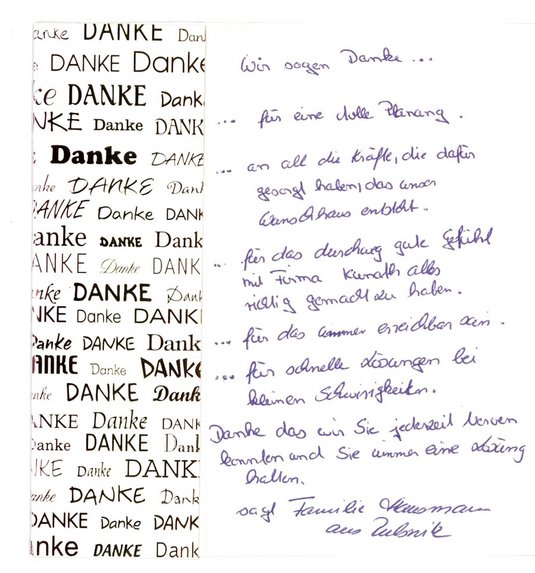 Danke DANKE Dan
DANKE Danke
ke DANKE Dank
NKE Danke DANK
Danke DANKE
nke DANKE Dank
DANKE Danke DANK
anke DANKE Dank
ANKE Danke DANK
nke DANKE Dank
NKE Danke DANKE
Danke DANKE Danke
DANKE Danke DANKE
nke DANKE Dank
ANKE Danke DANK
anke DANKE Dank
KE Danke DANK
anke DANKE Dank
DANKE Danke DANK
nke DANKE Dank
Wir sagen Danke ...
... für eine tolle Planung.
... an all die Kräfte, die dafür
gesorgt haben, das unser
Wunschhaus entsteht.
... für das durchweg gute Gefühl
mit Firma alles
richtig gemacht zu haben.
... für das immer erreichbar sein.
... für schnelle Lösungen bei
kleinen Schwirigkeiten.
Danke das wir Sie jederzeit nerven
konnten und Sie immer eine Lösung
hatten.
sagt Familie
aus